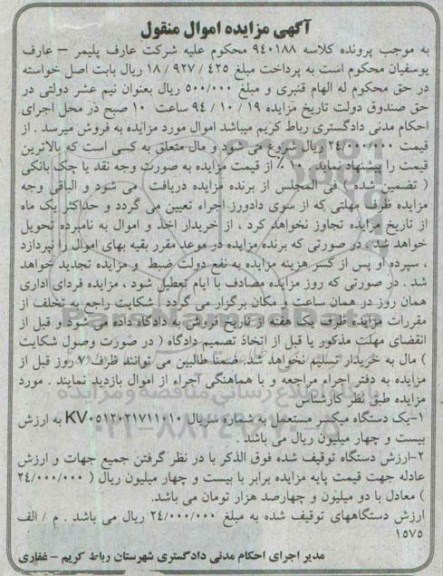 آگهی مزایده اموال منقول
به موجب پرونده کلاسه ۹۴۰۱۸۸ محکوم علیه شرکت عارف پلیمر – عارف
یوسفیان محکوم است به پرداخت مبلغ ۱۸/۹۲۷/۴۲۵ ریال بابت اصل خواسته
در حق محکوم له الهام قنبری و مبلغ ۵۰۰/۰۰۰ ریال بعنوان نیم عشر دولتی در
حق صندوق دولت تاریخ مزایده ۱۹ / ۱۰ / ۹۴ ساعت ۱۰ صبح در محل اجرای
احکام مدنی دادگستری رباط کریم میباشد اموال مورد مزایده به فروش میرسد . از
قیمت ۲۴/۰۰۰/۰۰۰ ریال شروع می شود و مال متعلق به کسی است که بالاترین
قیمت را پیشنهاد نماید ۱۰ ٪ از قیمت مزایده به صورت وجه نقد یا چک بانکی
( تضمین شده ) فی المجلس از برنده مزایده دریافت می شود و الباقی وجه
مزایده ظرف مهلتی که از سوی دادورز اجراء تعیین می گردد و حداکثر یک ماه
از تاریخ مزایده تجاوز نخواهد کرد ، از خریدار اخذ و اموال به نامبرده تحویل
خواهد شد . در صورتی که برنده مزایده در موعد مقرر بقیه بهای اموال را نپردازد
، سپرده او پس از کسر هزینه مزایده به نفع دولت ضبط و مزایده تجدید خواهد
شد . در صورتی که روز مزایده مصادف با ایام تعطیل شود ، مزایده فردای اداری
همان روز در همان ساعت و مکان برگزار می گردد . شکایت راجع به تخلف از
مقررات مزایده ظرف یک هفته از تاریخ فروش به دادگاه داده می شود و قبل از
انقضای مهلت مذکور یا قبل از اتخاذ تصمیم دادگاه ( در صورت وصول شکایت
) مال به خریدار تسلیم نخواهد شد. ضمنا طالبین می توانند ظرف ۷ روز قبل از
مزایده به دفتر اجراء مراجعه و با هماهنگی اجراء از اموال بازدید نمایند . مورد
مزایده طبق نظر کارشناس :
۱-یک دستگاه میکسر مستعمل به شماره سریال KV۰۵۱۲۰۲۱۷۱۱۰۱۰ به ارزش
بیست و چهار میلیون ریال می باشد .
۲-ارزش دستگاه توقیف شده فوق الذکر با در نظر گرفتن جمیع جهات و ارزش
عادله جهت قیمت پایه مزایده برابر با بیست و چهار میلیون ریال ( ۲۴/۰۰۰/۰۰۰
) معادل با دو میلیون و چهارصد هزار تومان می باشد.
ارزش دستگاههای توقیف شده به مبلغ ۲۴/۰۰۰/۰۰۰ ریال می باشد . م / الف
۱۵۷۵
مدیر اجرای احکام مدنی دادگستری شهرستان رباط کریم – غفاری